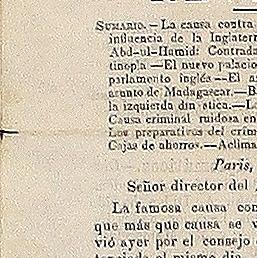 SUMARIO.—La causa contra
influencia de la Inglaterr
Abd-ul-Hamid: Contrada
tinopla.—El nuevo palacio
parlamento inglés—El a
asunto de Madagascar.—B
la izquierda din stica.—Lo
Causa criminal ruidosa en
Los preparativos del crim
Cajas de ahorros.—Aclima
Paris,
Señor director del
La famosa causa con
que más que causa se v
vió ayer por el consejo
el mismo dia